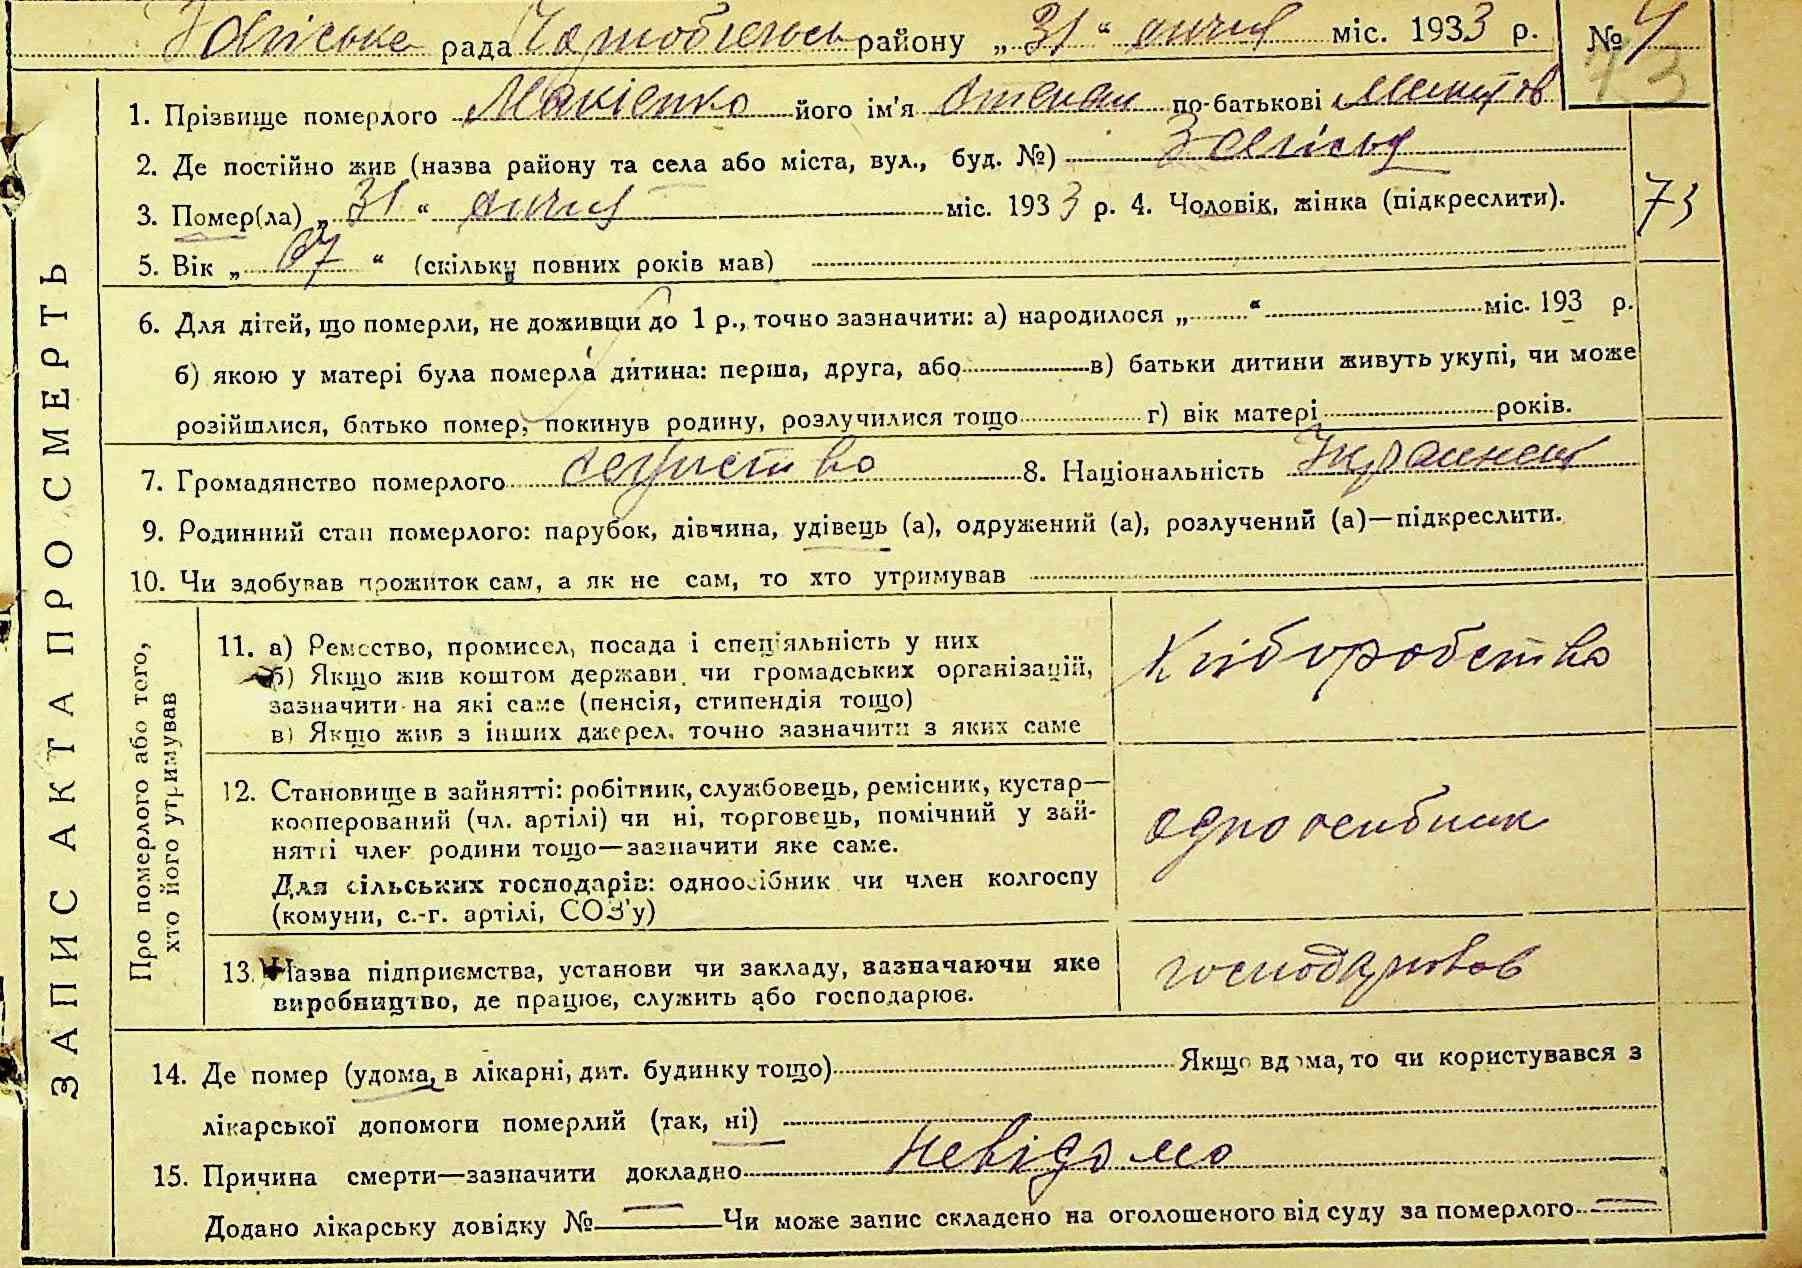 рада району „ 31 “ січня міс. 1933 р. №
73
1. Прізвище померлого Макієнко його ім'я Степан по-батькові
2. Де постійно жив (назва району та села або міста, вул., буд. №) Залісся
3. Помер(ла) „ 31 “ січня міс. 1933 р. 4. Чоловік, жінка (підкреслити).
73
5. Вік „ 67 “ (скільки повних років мав)
6. Для дітей, що померли, не доживши до 1 р., точно зазначити: а) народилося „ “ міс. 193 р.
б) якою у матері була померла дитина: перша, друга, або в) батьки дитини живуть укупі, чи може
розійшлися, батько помер, покинув родину, розлучилися тощо г) вік матері років.
7. Громадянство померлого 8. Національність Украинец
9. Родинний стан померлого: парубок, дівчина, удівець (а), одружений (а), розлучений (а)—підкреслити.
10. Чи здобував прожиток сам, а як не сам, то хто утримував
ЗАПИС АКТА ПРО СМЕРТЬ
Про померлого або того, хто його утримував
11. а) Ремество, промисел, посада і спеціяльність у них
б) Якщо жив коштом держави, чи громадських організацій,
зазначити на які саме (пенсія, стипендія тощо)
в) Якщо жив з інших джерел, точно зазначити з яких саме
Хліборобство
12. Становище в зайнятті: робітник, службовець, ремісник, кустар—
кооперований (чл. артілі) чи ні, торговець, помічний у зай-
нятті член родини тощо—зазначити яке саме.
Для сільських господарів: одноосібник чи член колгоспу
(комуни, с.-г. артілі, СОЗ'у)
одноосибник
13. Назва підприємства, установи чи закладу, зазначаючи яке
виробництво, де працює, служить або господарює.
господарював
14. Де помер (удома, в лікарні, дит. будинку тощо) Якщо вдома, то чи користувався з
лікарської допомоги померлий (так, ні)
15. Причина смерти—зазначити докладно невідомо
Додано лікарську довідку № Чи може запис складено на оголошеного від суду за померлого